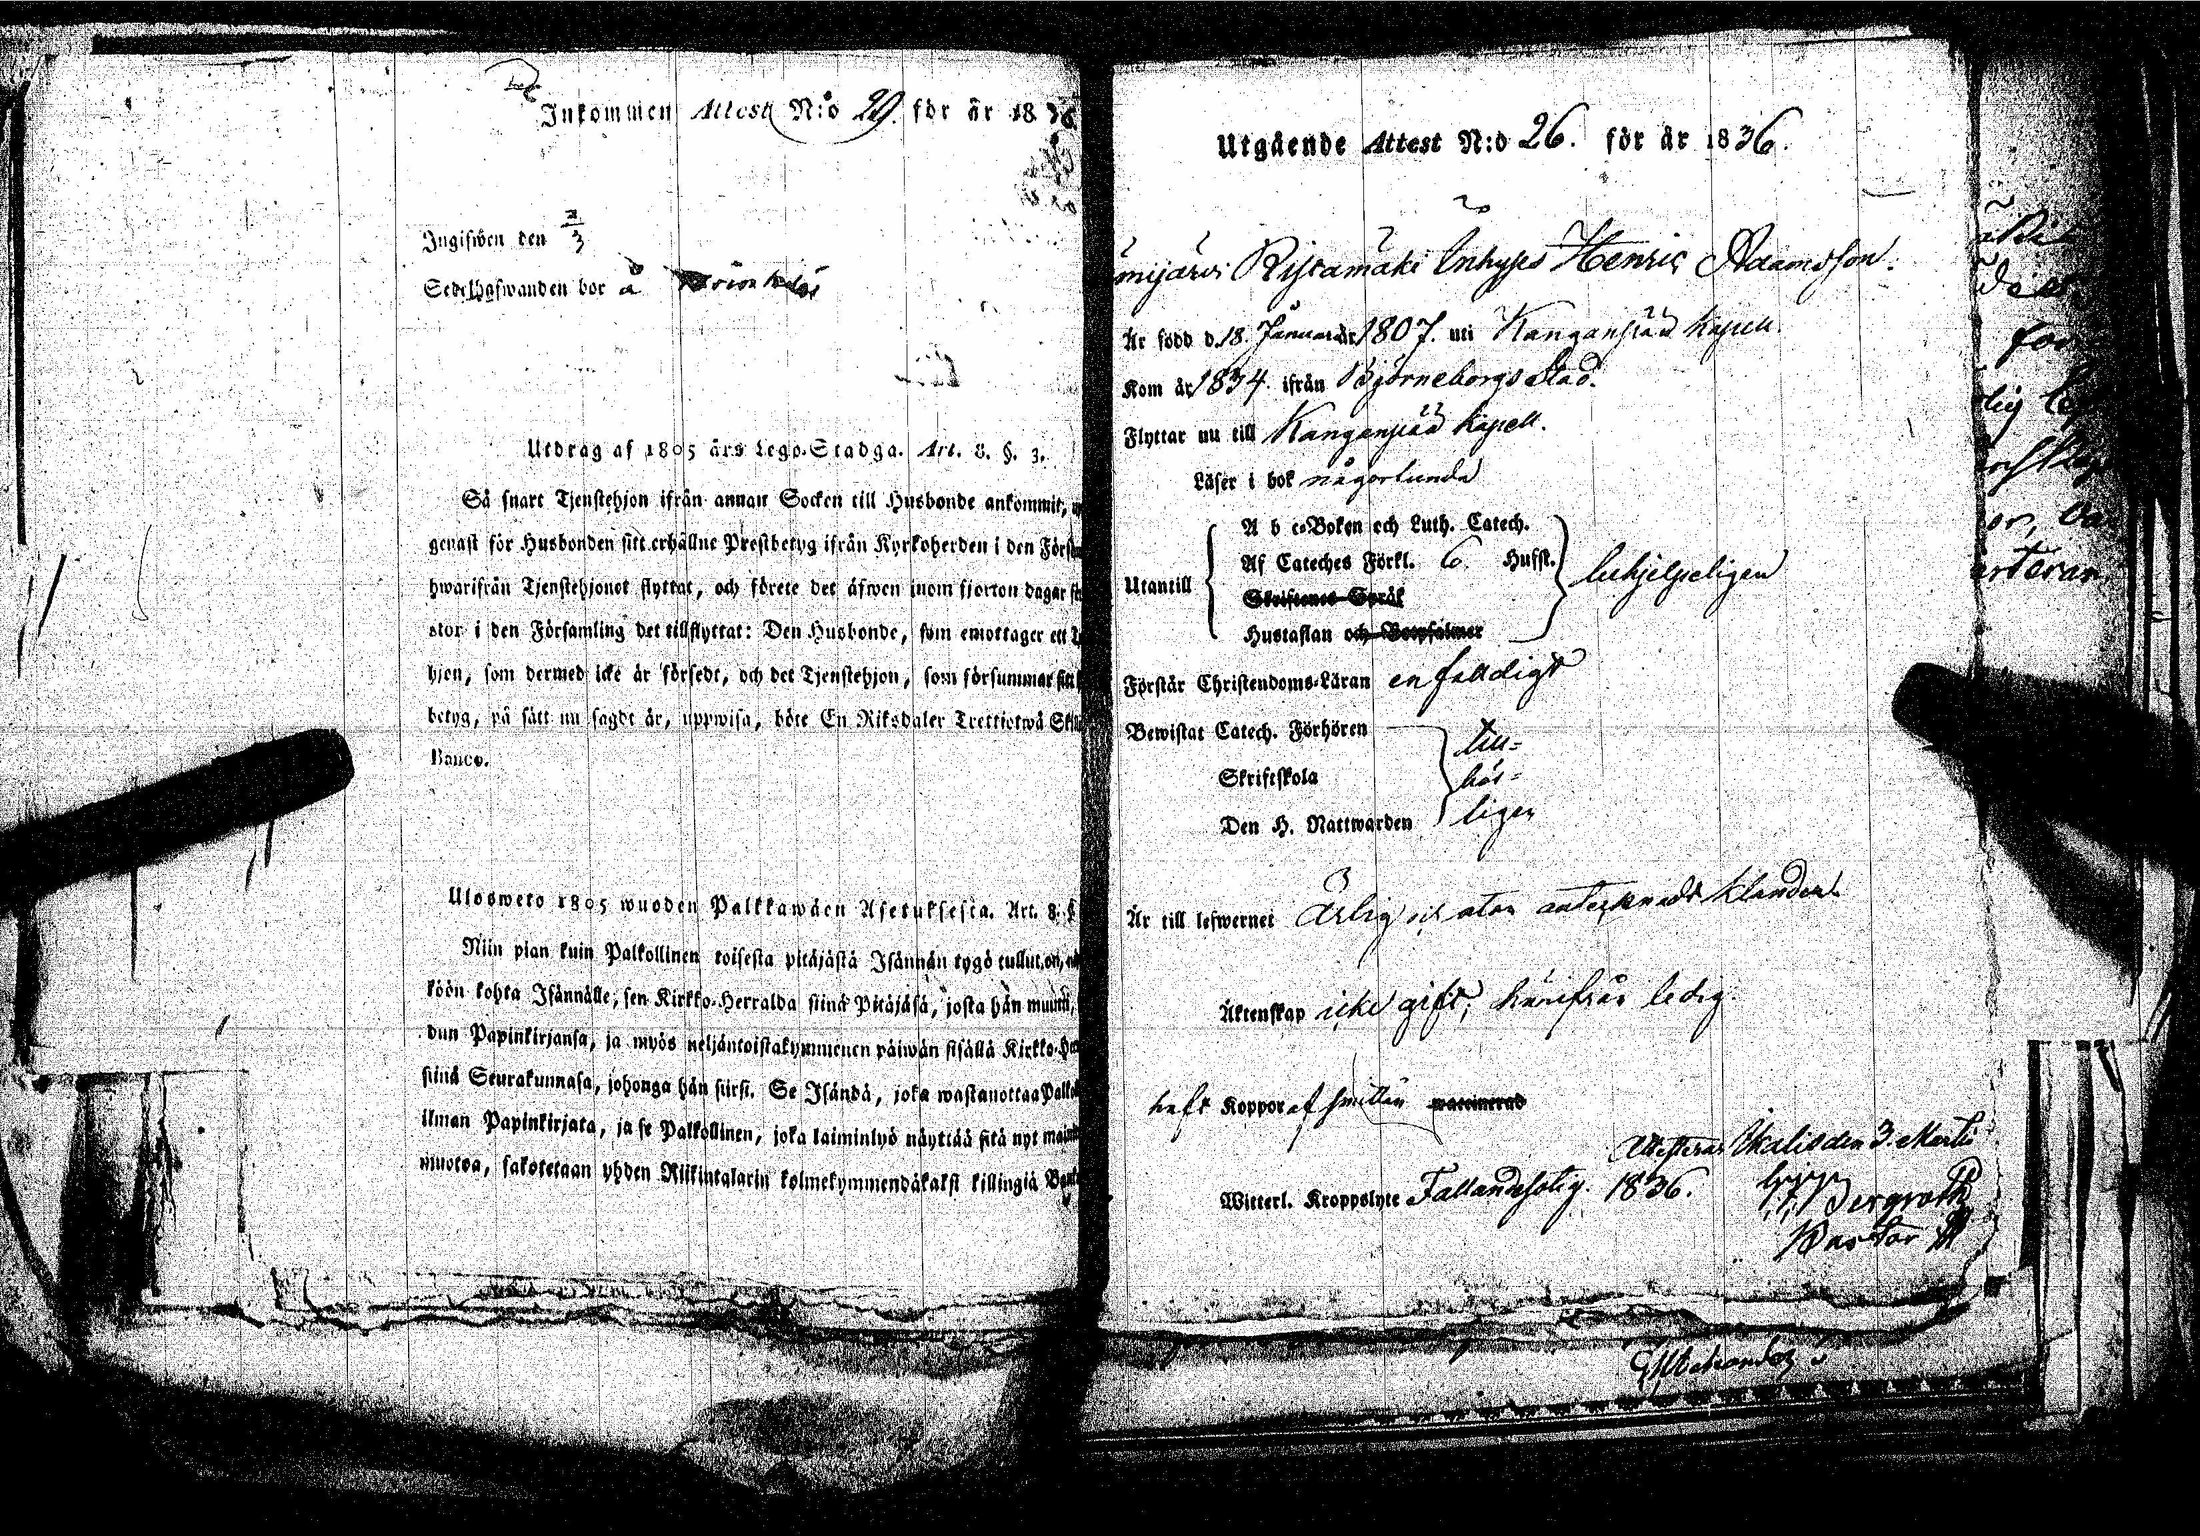 Inkommen Attest N:o 29. för år 1836
Ingifwen den 2/3
Sedelhafwanden bor å
Utdrag af 1805 års Lego-Stadga. Art. 8. §. 3.
Så snart Tjenstehjon ifrån annan Socken till Husbonde ankommit,
genast för Husbonden sitt erhållne Prestbetyg ifrån Kyrkoherden i den
hwarifrån Tjenstehjonet flyttat, och förete det äfwen inom fjorton dagar
stor i den Församling det tillflyttat: Den Husbonde, som emottager ett
hjon, som dermed icke är försedt, och det Tjenstehjon, som försummar sitt
betyg, på sätt nu sagdt är, uppwisa, böte En Riksdaler Trettiotwå
Banco.
Ulosweto 1805 wuoden Palkkawäen Asetuksesta. Art. 8. §
Niin pian kuin Palkollinen toisesta pitäjästä Isännän tygö tullut on,
köön kohta Isännälle, sen Kirkko-Herralda siinä Pitäjäsä, josta hän muutti,
dun Papinkirjansa, ja myös neljäntoistakymmenen päiwän sisällä
siinä Seurakunnasa, johonga hän siirsi. Se Isändä, joka wastanottaa
ilman Papinkirjata, ja se Palkollinen, joka laiminlyö näyttää sitä nyt
muotoa, sakotetaan yhden Riikintalarin kolmekymmendäkaksi killingiä
Utgående Attest N:o 26. för år 1836.
Ristamäki Inhyses Henric Adamsson.
Är född d. 18. Januari år 1807. uti Kangansiää Kapell
Kom år 1834. ifrån Björneborgs Stad.
Flyttar nu till Kanganpää Kapell.
Läser i bok någorlunda
Utantill
A b c-Boken och Luth. Catech.
Af Cateches Förkl. 6. Hufst.
Skriftenes Språk
Hustaflan och Botpsalmer
behjelpeligen
Förstår Christendoms-Läran enfaldigt
Bewistat Catech. Förhören
Skriftskola
Den H. Nattwarden
till=
hör=
ligen
Är till lefwernet Ärlig och utan antecknadt klander.
Äktenskap icke gift, härifrån ledig.
haft Koppor af smittan vaccinerad
Witterl. Kroppslyte Fallandesotig.
Attesteras Ikalis den 3. Martii
1836.
Bergroth
Pastor